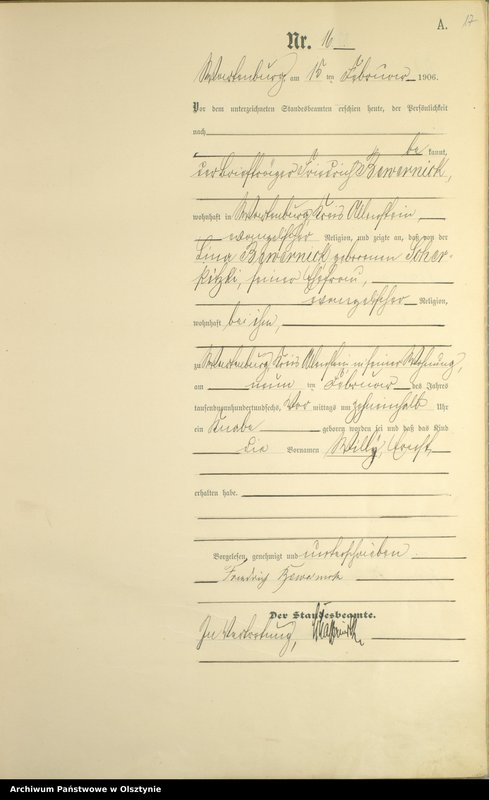 A.
17
Nr. 16
Wartenburg am 15 ten Februar 1906.
Vor dem unterzeichneten Standesbeamten erschien heute, der Persönlichkeit
nach
be kannt,
der Briefträger Friedrich Bewernick,
wohnhaft in Wartenburg Kreis Allenstein
evangelischer Religion, und zeigte an, daß von der
Lina Bewernick geborenen Scher-
kitzki, seiner Ehefrau,
evangelischer Religion,
wohnhaft bei ihm,
zu Wartenburg Kreis Allenstein, in seiner Wohnung,
am neun ten Februar des Jahres
tausendneunhundertundsechs, Vor mittags um zehneinhalb Uhr
ein Knabe geboren worden sei und daß das Kind
die Vornamen Willy,
erhalten habe.
Vorgelesen, genehmigt und unterschrieben
Friedrich Bewernick
Der Standesbeamte.
In Vertretung,
Archiwum Państwowe w Olsztynie